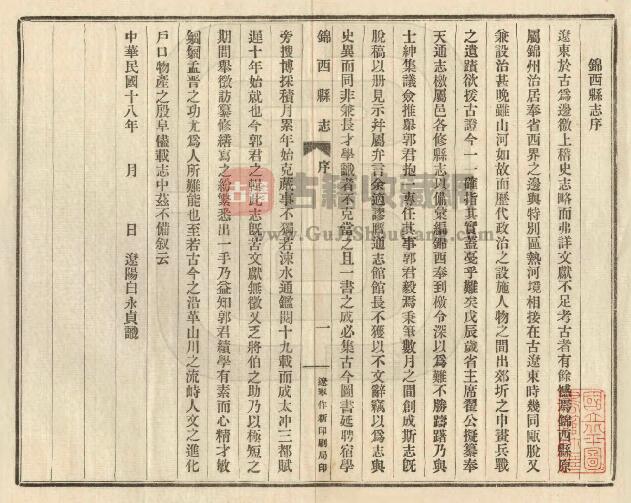 錦西縣志序
遼東於古爲邊徼上稽史志略而弗詳文獻不足考古者有餘憾焉錦西縣原
屬錦州治居奉省西界之邊與特別區熱河境相接在古遼東時幾同甌脫又
兼設治甚晚雖山河如故而歷代政治之設施人物之間出郊圻之申畫兵戰
之遺蹟欲援古證今一一確指其實蓋戞乎難矣戊辰歲省主席翟公擬纂奉
天通志檄屬邑各修縣志以備彙編錦西奉到檄令深以爲難不勝躊躇乃與
士紳集議僉推舉郭君抱一專任其事郭君毅焉秉筆數月之間創成斯志旣
脫稿以册見示幷屬弁言余過謬膺通志館館長不獲以不文辭竊以爲志與
史異而同非兼長才學識者不克當之且一書之成必集古今圖書延聘宿學
錦西縣志 序 一 遼寧作新印刷局印
旁搜博採積月累年始克蕆事不獨若涑水通鑑閱十九載而成太冲三都賦
遲十年始就也今郭君之輯此志旣苦文獻無徵又乏將伯之助乃以極短之
期間舉徵訪纂修繕寫之紛繁悉出一手乃益知郭君績學有素而心精才敏
絪縕孟晉之功尤爲人所難能也至若古今之沿革山川之流峙人文之進化
戶口物產之殷阜備載志中茲不備叙云
中華民國十八年 月 日 遼陽白永貞識
古籍收藏網
www.GujiShouCang.com